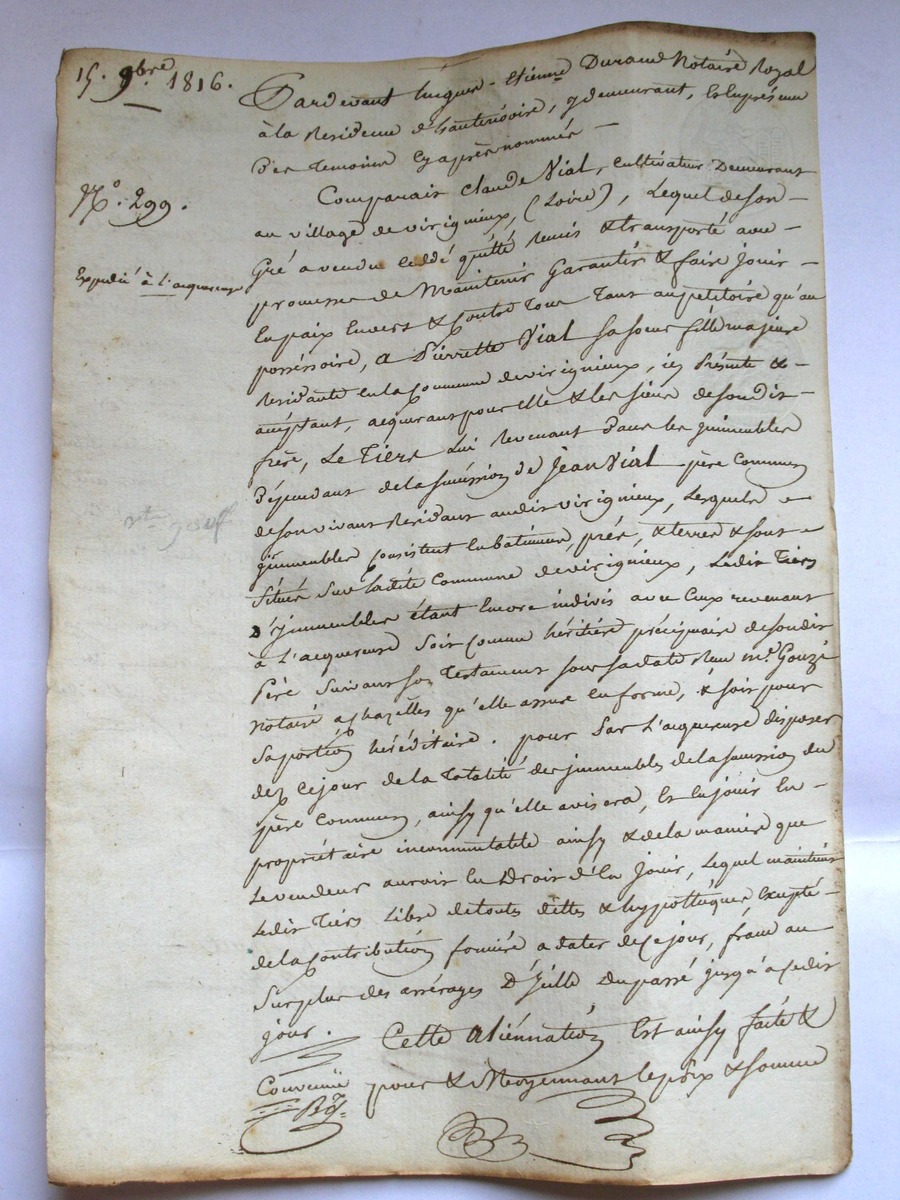 15. 9bre 1816.
N.o 299.
Expedié à l'acquereuse
Pardevant hugues-Etienne Durand Notaire Royal
à la Residence d'hauterivoire, y demeurant, Est en présence
Des Temoins Cy après nommés —
Comparait Claude Vial, Cultivateur Demeurant
au village de virignieux, (Loire), Lequel de son —
Gré a vendu Ceddé quitté remis & transporté avec —
promesse de Maintenir Garantir & faire Jouir —
En paix Envers & Contre Tous Tant au petitoire qu'au
possessoire, a Pierrette Vial sa soeur fille majeure
Residante en la Commune de virignieux, icy Présente & —
acceptant, acquerant pour elle & les siens de son dit —
frère, Le Tiers Lui Revenant Dans les jmmeubles
Dépendant de la succéssion de Jean Vial père Commun
de son vivant Residant audit virignieux, Lesquels —
jmmeubles Consistent En batiment, prés, & terres & sont —
Situés Sur Ladite Commune de virignieux, Ledit Tiers
D'jmmeubles étant Encore indivis avec Ceux revenant
à L'acquereuse Soit Comme héritière préciputaire de son dit
Père Suivant son Testament sous sa date Reçu m.e Gouzé
notaire a Chazelles qu'elle assure En forme, & soit pour
Sa portion héréditaire. pour Par L'acquereuse disposer
dez Ce jour de la Totalité des jmmeubles de la succession du
père Commun, ainsy qu'elle avisera, Est En jouir En —
propriétaire incommutable ainsy & de la maniere que
Le vendeur auroit Eu Droit d'En Jouir, Lequel maintient
Ledit Tiers Libre de toutes dettes & hypothèques, Excepté —
de la Contribution fonciére a dater de Ce jour, franc au
Surplus des arrérages D'jcelle Du passé jusqu'a Cedit
jour. Cette aliénnation Est ainsy faite &
Convenue pour & Moyennant le prix & somme